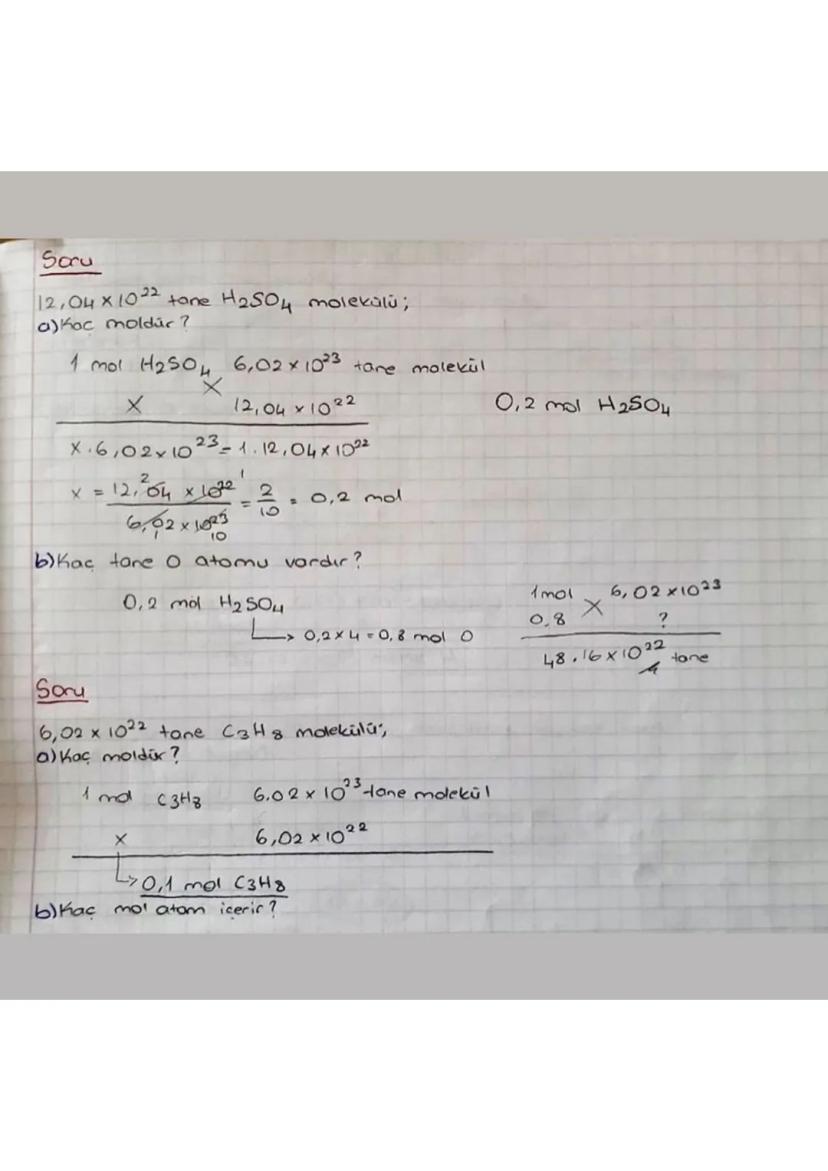 Soru
12,04 x 10²² tane H₂SO₄ molekülü;
a) Kaç moldür?
1 mol H₂SO₄ 6,02 x 10²³ tane molekül
X
x 12,04 x 10²² 0,2 mol H₂SO₄
x . 6,02 x 10²³ = 1 . 12,04 x 10²²
x = 12,04 x 10²² / 6,02 x 10²³ = 2/10 = 0,2 mol
b) Kaç tane O atomu vardır?
0,2 mol H₂SO₄
→ 0,2 x 4 = 0,8 mol O
1 mol X 6,02 x 10²³
0,8 ?
48.16 x 10²² tane
Soru
6,02 x 10²² tane C₃H₈ molekülü;
a) Kaç moldür?
1 mol C₃H₈ 6.02 x 10²³ tane molekül
x 6,02 x 10²²
→ 0,1 mol C₃H₈
b) Kaç mol atom içerir?